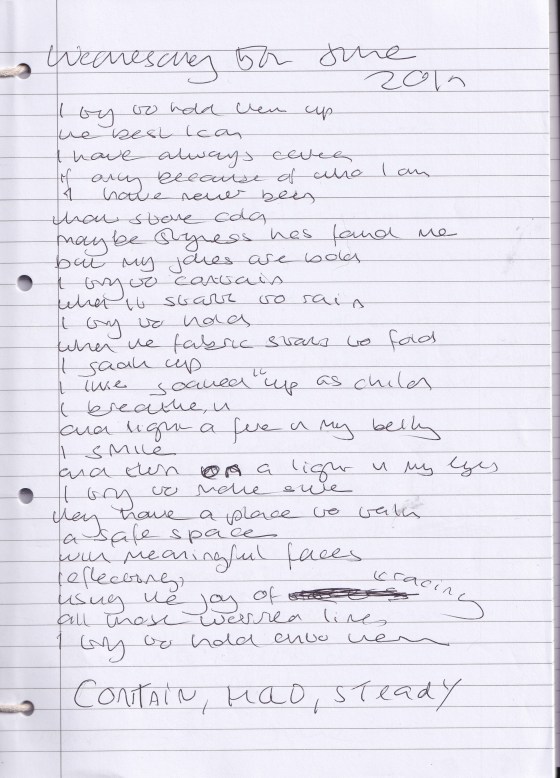 Wednesday 5th June
I try to hold them up
the best I can
I have always cared
if only because of who I am
I have never been
that stone cold
maybe shyness has found me
but my jokes are told
I try to contain
when it starts to rain
I try to hold
when the fabric starts to fold
I soak up
I like "soaked" up as child
I breathe in
and light a fire in my belly
I smile
and turn on a light in my eyes
I try to make sure
they have a place to talk
a safe space
with meaningful faces
reflecting,
using the joy of tracing
all those worried lines
I try to hold onto them
CONTAIN, HOLD, STEADY